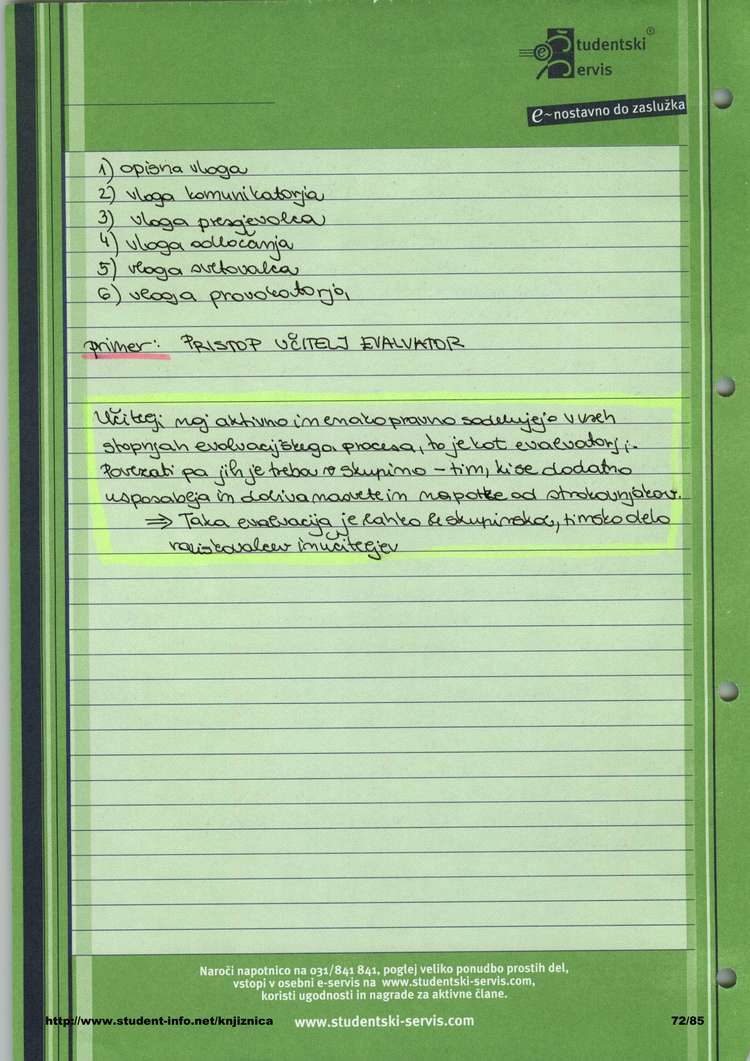 Študentski®
Servis
e-nostavno do zaslužka
1) opisna vloga
2) vloga komunikatorja
3) vloga presojevalca
4) vloga odločanja
5) vloga svetovalca
6) vloga provokatorja
primer: PRISTOP UČITELJ EVALVATOR
Učitelji naj aktivno in enakopravno sodelujejo v vseh
stopnjah evalvacijskega procesa, to je kot evalvatorji.
Povezati pa jih je treba v skupino – tim, ki se dodatno
usposablja in dobiva nasvete in napotke od strokovnjakov.
⇒ Taka evalvacija je lahko le skupinsko, timsko delo
raziskovalcev in učiteljev
Naroči napotnico na 031/841 841, poglej veliko ponudbo prostih del,
vstopi v osebni e-servis na www.studentski-servis.com,
koristi ugodnosti in nagrade za aktivne člane.
http://www.student-info.net/knjiznica www.studentski-servis.com 72/85